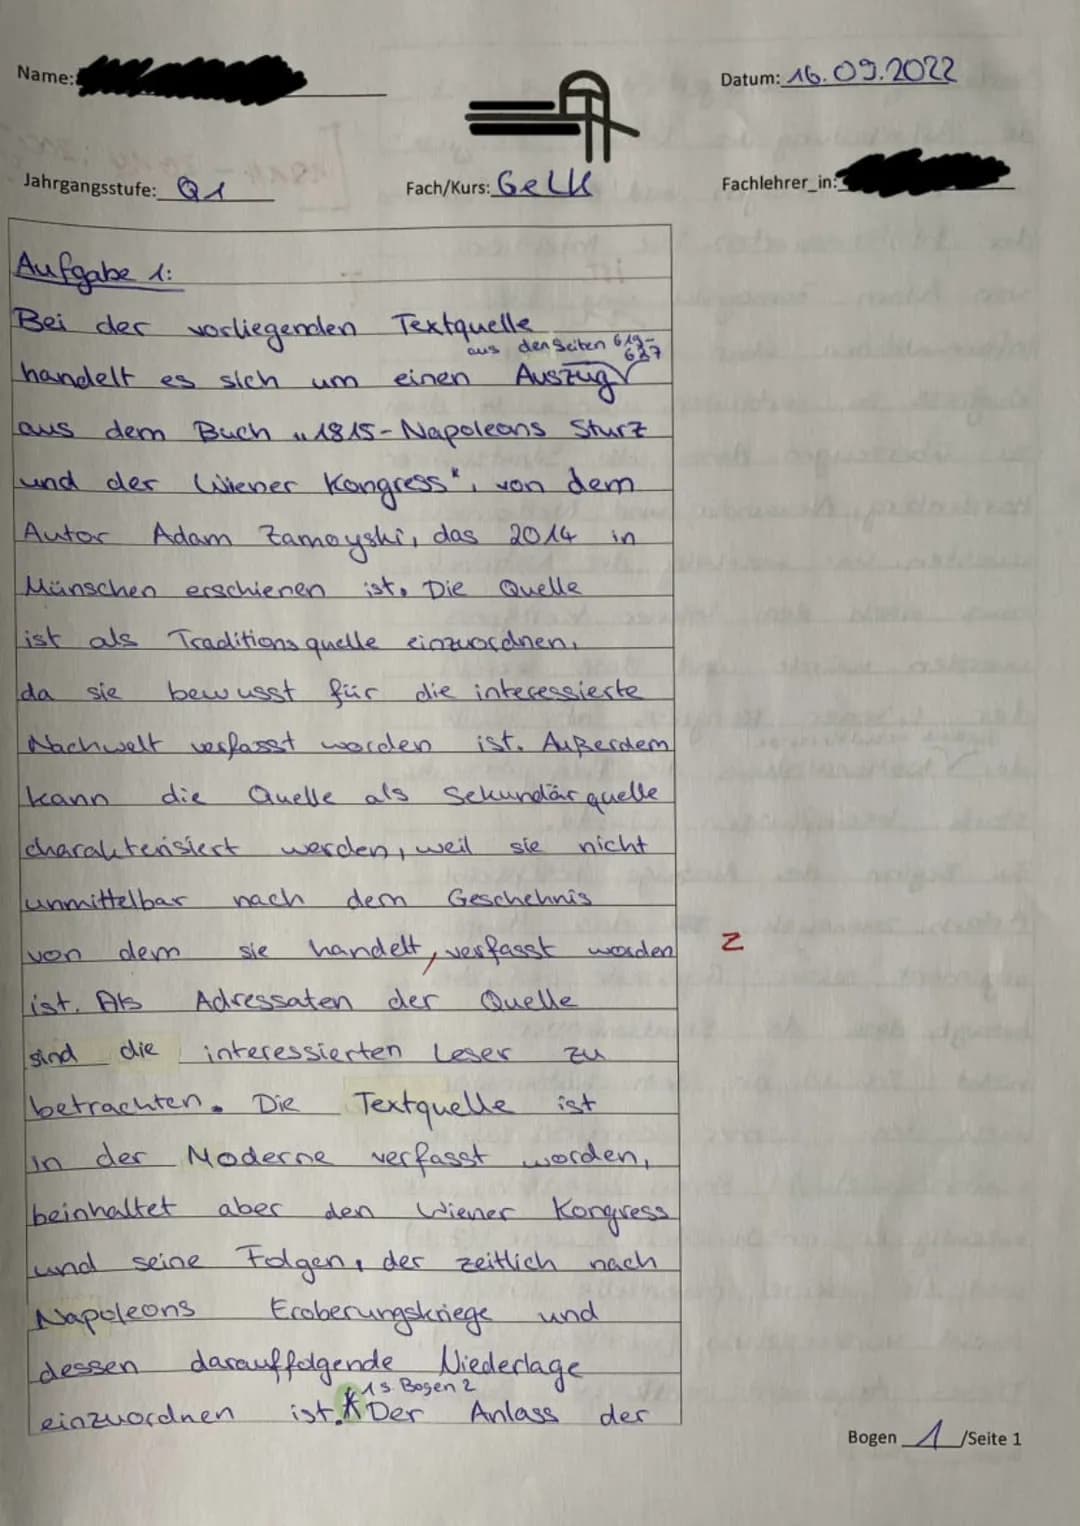 Name:
Datum: 16.09.2022
Jahrgangsstufe: Q1
Fach/Kurs: GeLK
Fachlehrer_in:
Aufgabe 1:
Bei der vorliegenden Textquelle
aus den Seiten 619-
637
handelt es sich um einen Auszug
aus dem Buch „1815-Napoleons Sturz
und der Wiener Kongress", von dem
Autor Adam Zamoyski, das 2014 in
Münschen erschienen ist. Die Quelle
ist als Traditionsquelle einzuordnen,
da sie bewusst für die interessierte
Nachwelt verfasst worden ist. Außerdem
kann die Quelle als Sekundärquelle
charakterisiert werden, weil sie nicht
unmittelbar nach dem Geschehnis
von dem sie handelt, verfasst worden
Z
ist. Als Adressaten der Quelle
sind die interessierten Leser zu
betrachten. Die Textquelle ist
in der Moderne verfasst worden,
beinhaltet aber den Wiener Kongress
und seine Folgen, der zeitlich nach
Napoleons Eroberungskriege und
dessen darauffolgende Niederlage
*1 s. Bogen 2
einzuordnen ist. Der Anlass der
Bogen 1 /Seite 1